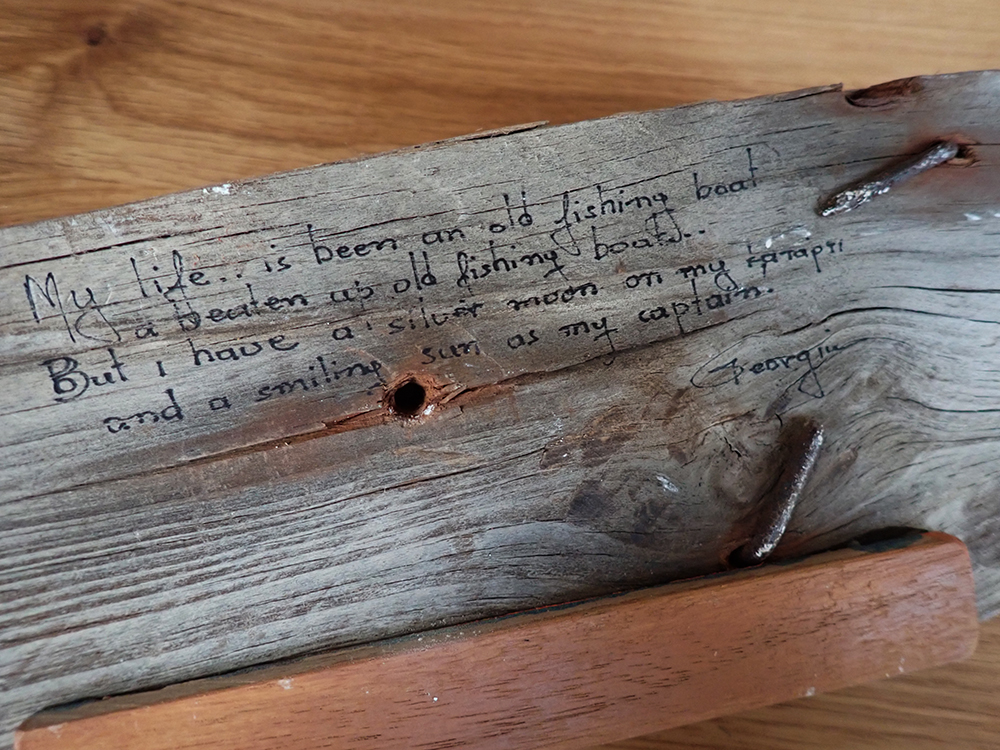 My life.. is been an old fishing boat
a beaten up old fishing boat...
But i have a silver moon on my
and a smiling sun as my captain.